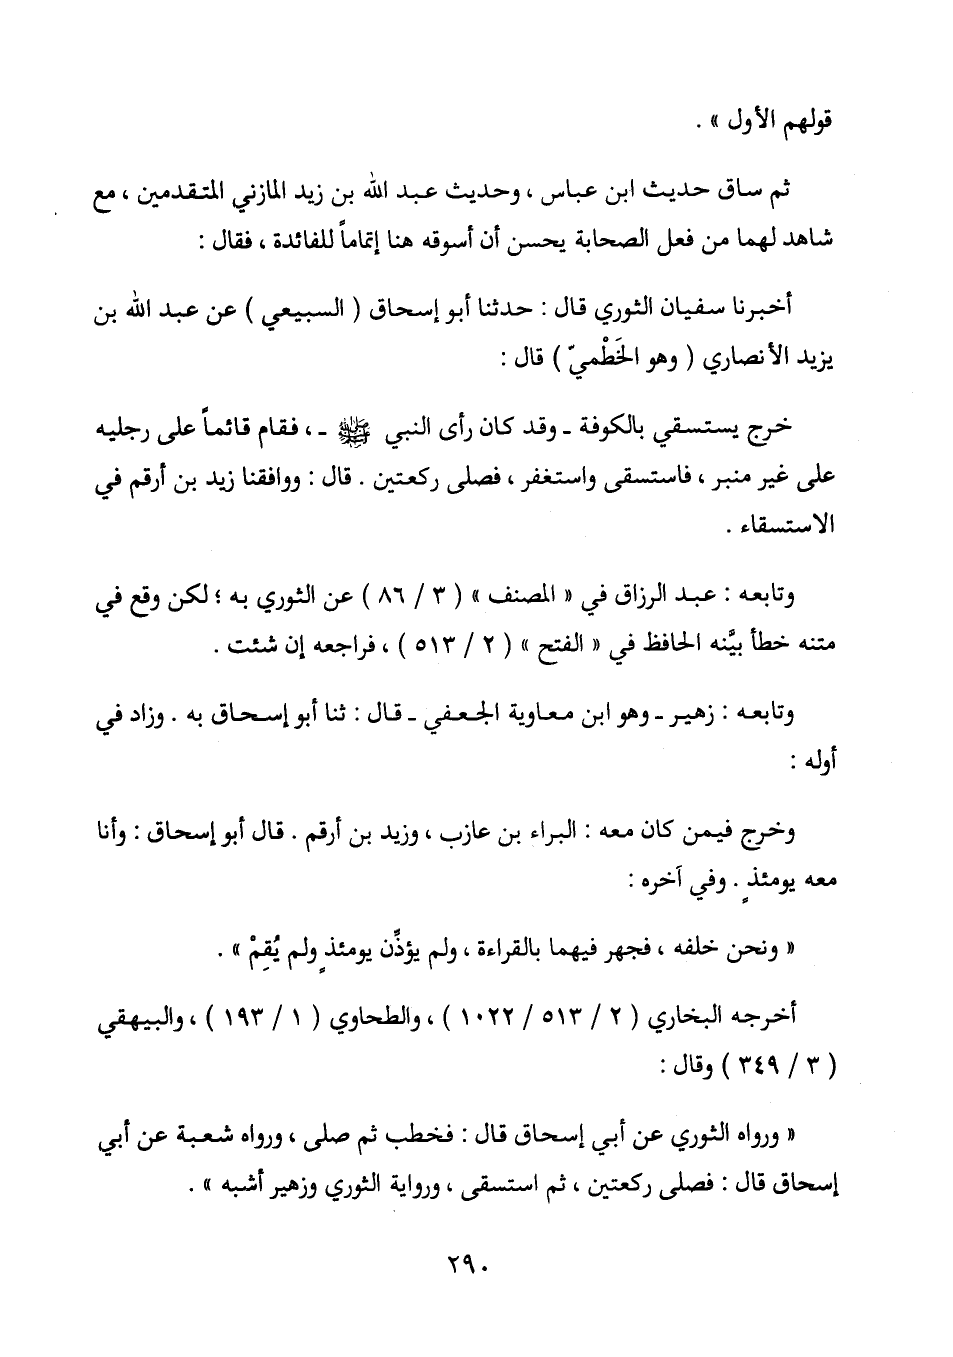 قولهم الأول » .
ثم ساق حديث ابن عباس ، وحديث عبد الله بن زيد المازني المتقدمين ، مع
شاهد لهما من فعل الصحابة يحسن أن أسوقه هنا إتماماً للفائدة ، فقال :
أخبرنا سفيان الثوري قال : حدثنا أبو إسحاق ( السبيعي ) عن عبد الله بن
يزيد الأنصاري ( وهو الخَطْميّ ) قال :
خرج يستسقي بالكوفة ـ وقد كان رأى النبي ﷺ ـ ، فقام قائماً على رجليه
على غير منبر ، فاستسقى واستغفر ، فصلى ركعتين . قال : ووافقنا زيد بن أرقم في
الاستسقاء .
وتابعه : عبد الرزاق في « المصنف » ( ٣ / ٨٦ ) عن الثوري به ؛ لكن وقع في
متنه خطأ بيَّنه الحافظ في « الفتح » ( ٢ / ٥١٣ ) ، فراجعه إن شئت .
وتابعه : زهير ـ وهو ابن معاوية الجعفي ـ قال : ثنا أبو إسحاق به . وزاد في
أوله :
وخرج فيمن كان معه : البراء بن عازب ، وزيد بن أرقم . قال أبو إسحاق : وأنا
معه يومئذٍ . وفي آخره :
« ونحن خلفه ، فجهر فيهما بالقراءة ، ولم يؤذَّن يومئذٍ ولم يُقِمْ » .
أخرجه البخاري ( ٢ / ٥١٣ / ١٠٢٢ ) ، والطحاوي ( ١ / ١٩٣ ) ، والبيهقي
( ٣ / ٣٤٩ ) وقال :
« ورواه الثوري عن أبي إسحاق قال : فخطب ثم صلى ، ورواه شعبة عن أبي
إسحاق قال : فصلى ركعتين ، ثم استسقى ، ورواية الثوري وزهير أشبه » .
٢٩٠